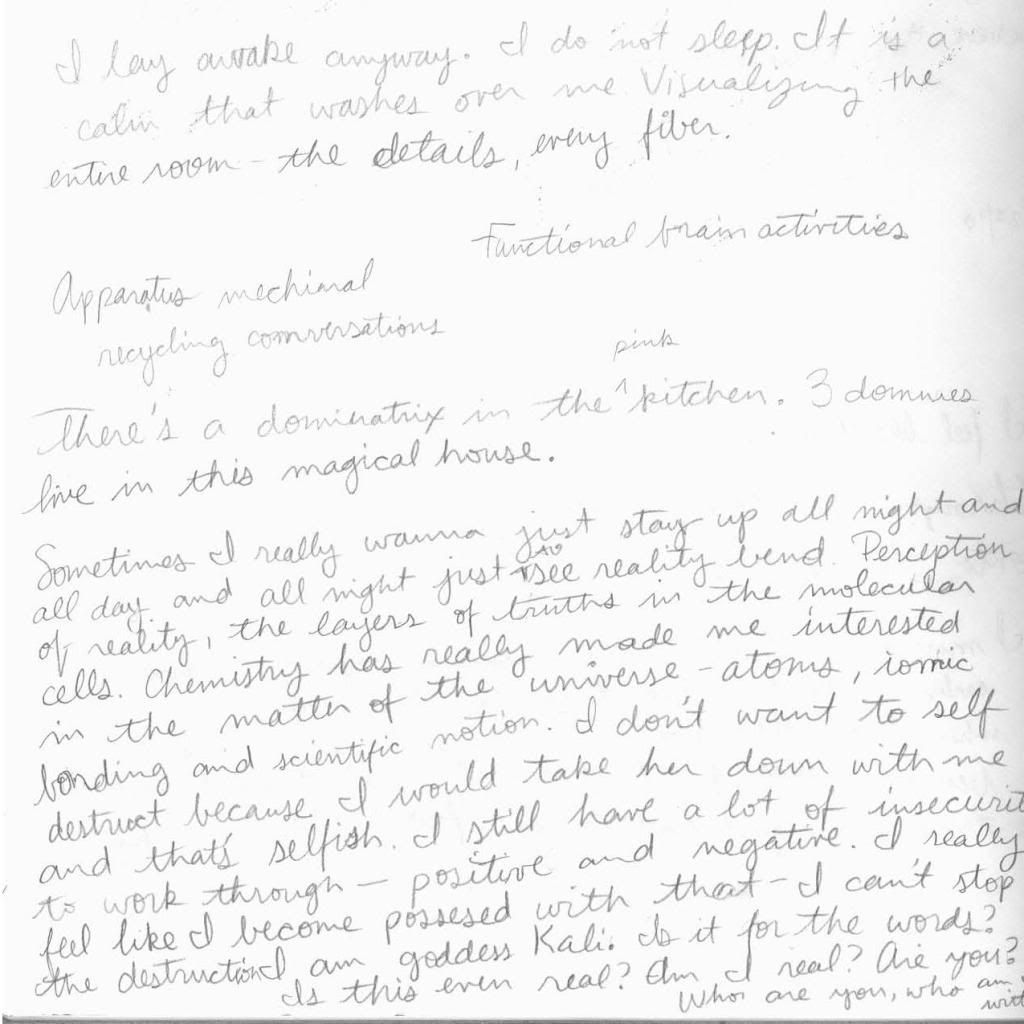 I lay awake anyway. I do not sleep. It is a
calm that washes over me Visualizing the
entire room - the details, every fiber.
Functional brain activities
Apparatus mechinal
recycling conversations
pink
There's a dominatrix in the ^ kitchen. 3 dommes
live in this magical house.
Sometimes I really wanna just stay up all night and
all day and all night just to see reality bend. Perception
of reality, the layers of truths in the molecular
cells. Chemistry has really made me interested
in the matter of the universe - atoms, ionic
bonding and scientific notion. I don't want to self
destruct because I would take her down with me
and that's selfish. I still have a lot of insecurit
to work through - positive and negative. I really
feel like I become possesed with that - I can't stop
the destruction I am goddess Kali. Is it for the words?
Is this even real? Am I real? Are you?
Who are you, who am
with